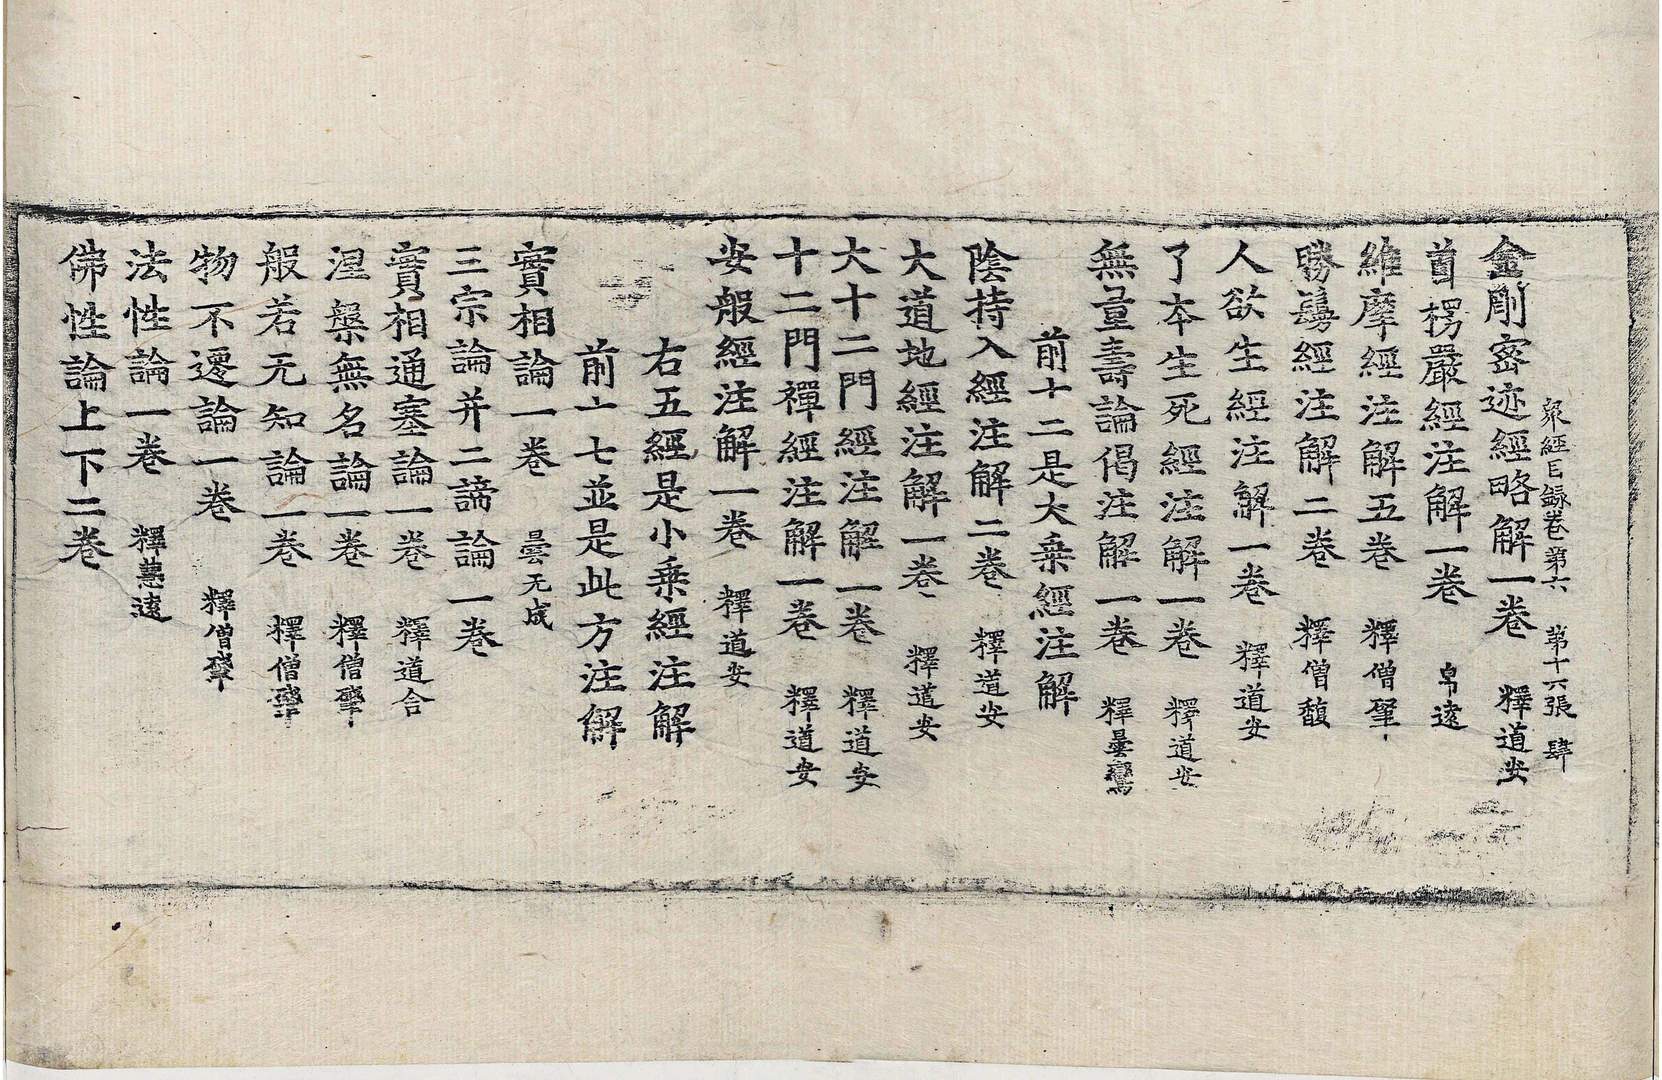 金剛密迹經略解一卷 釋道安
衆經目錄卷第六 第十六張 肆
首楞嚴經注解一卷 帛遠
維摩經注解五卷 釋僧肇
勝鬘經注解二卷 釋僧馥
人欲生經注解一卷 釋道安
了本生死經注解一卷 釋道安
無量壽論偈注解一卷 釋曇鸞
前十二是大乘經注解
陰持入經注解二卷 釋道安
大道地經注解一卷 釋道安
大十二門經注解一卷 釋道安
十二門禪經注解一卷 釋道安
安般經注解一卷 釋道安
右五經是小乘經注解
前十七並是此方注解
實相論一卷 曇无成
三宗論并二諦論一卷
實相通塞論一卷 釋道含
涅槃無名論一卷 釋僧肇
般若无知論一卷 釋僧肇
物不遷論一卷 釋僧肇
法性論一卷 釋慧遠
佛性論上下二卷